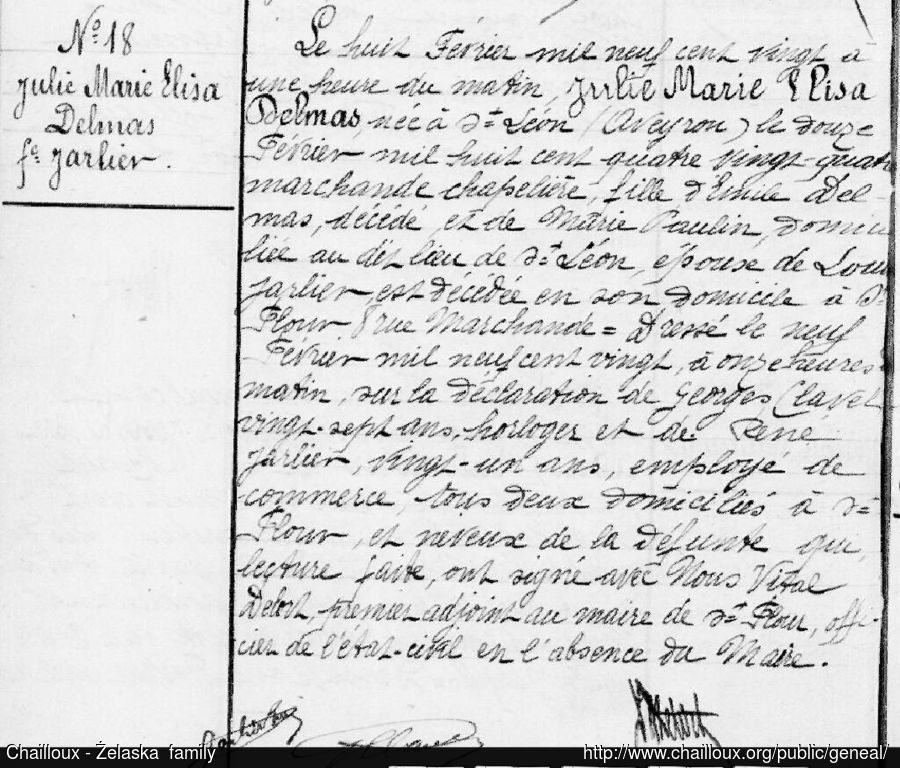 Nº 18
Julie Marie Elisa
Delmas
fe Jarlier.
Le huit Février mil neuf cent vingt à
une heure du matin, Julie Marie Elisa
Delmas, née à St Léon (Aveyron) le douze
Février mil huit cent quatre vingt-quatr
marchande chapelière, fille d'Emile Del-
mas, décédé, et de Marie Paulin, domici
liée au dit lieu de St Léon, épouse de Loui
Jarlier, est décédée en son domicile à St
Flour 8 rue Marchande = Dressé le neuf
Février mil neuf cent vingt, à onze heures
matin, sur la déclaration de Georges Clavel
vingt-sept ans, horloger et de René
Jarlier, vingt-un ans, employé de
commerce, tous deux domiciliés à St
Flour, et neveux de la défunte qui,
lecture faite, ont signé avec Nous Vital
Delort, premier adjoint au maire de St Flour, offi-
cier de l'état-civil en l'absence du Maire.
Chailloux - Żelaska family
http://www.chailloux.org/public/geneal/